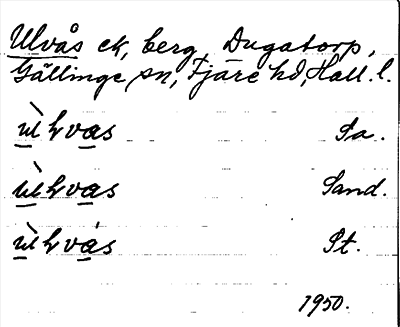 Ulvås ek, berg, Dugatorp,
Gällinge sn, Fjäre hd, Hall. l.
ùḷvas Sa.
ùḷvas Sand.
ùḷvás St.
1950.